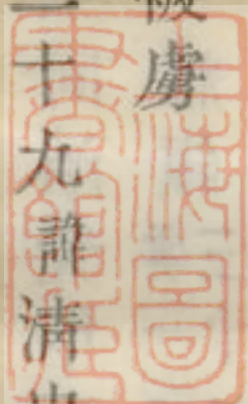 虜
十九許清
上海圖
書館藏